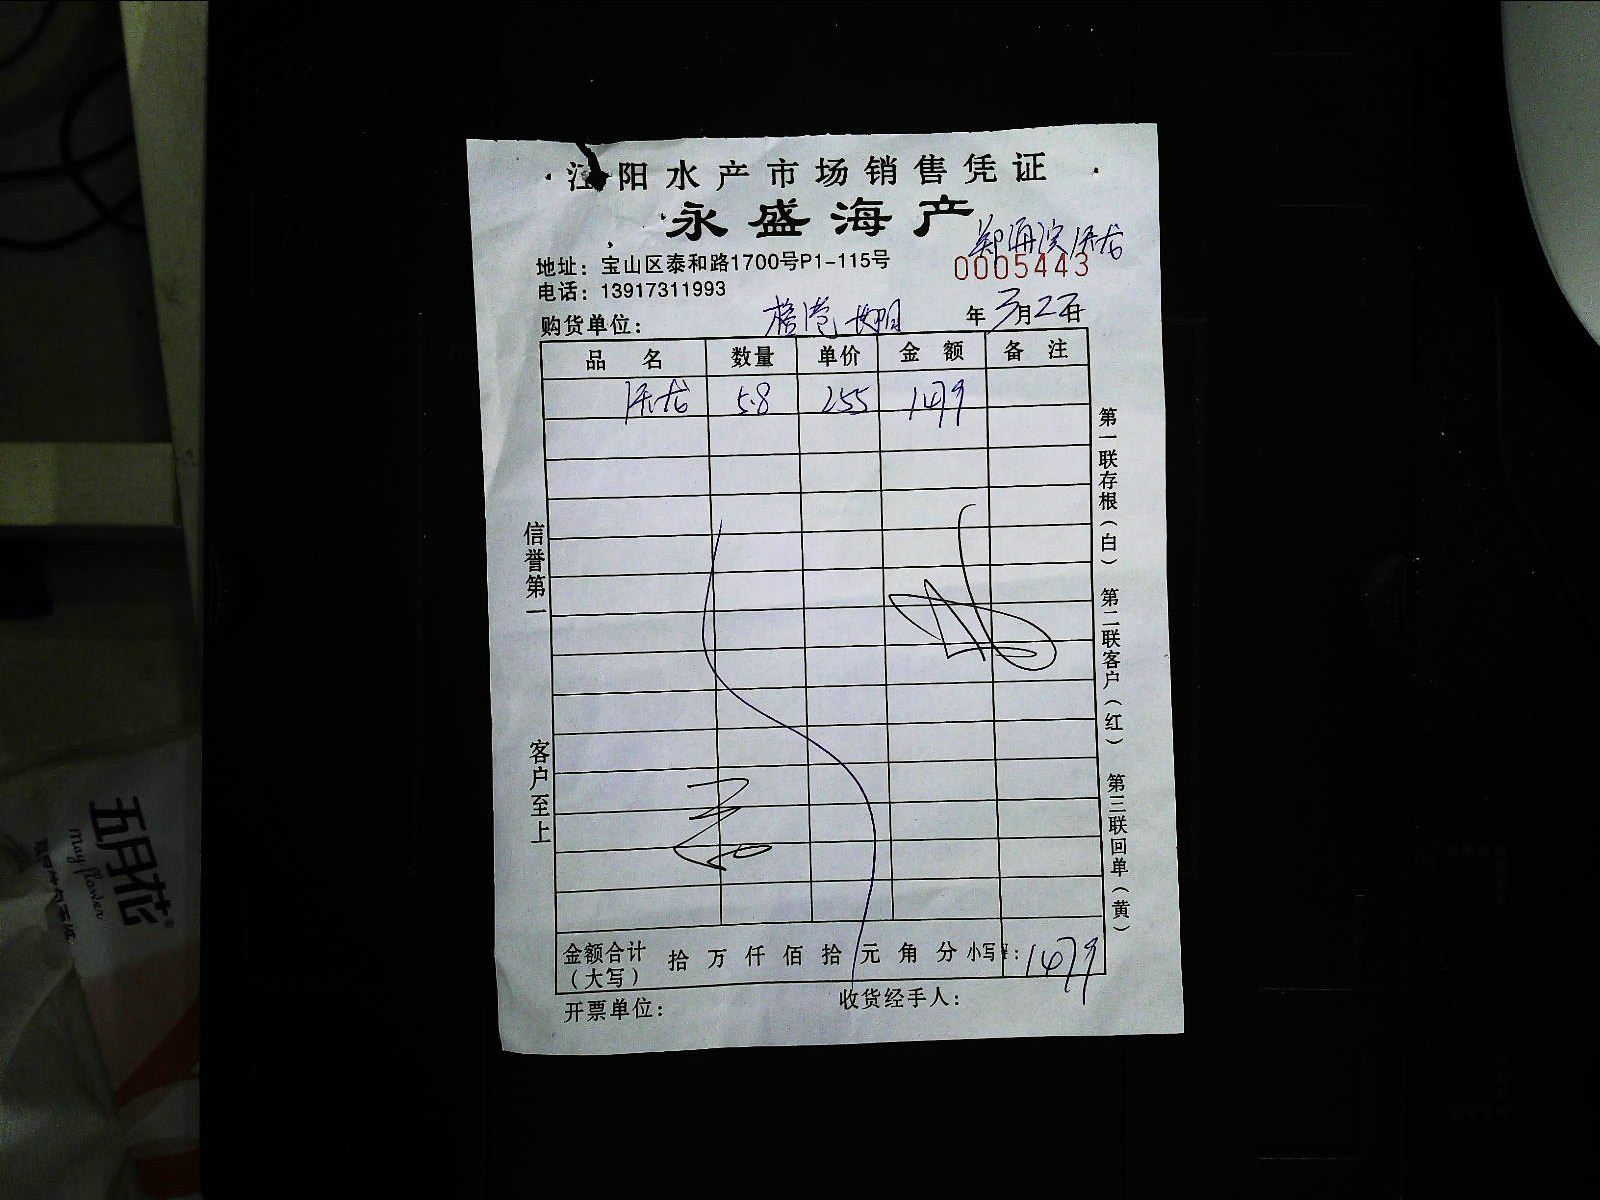 江阳水产市场销售凭证
永盛海产
地址：宝山区泰和路1700号P1-115号
0005443
电话：13917311993
购货单位：
年 3月2 日
品 名 数量 单价 金 额 备 注
5.8 255 1479
信誉第一
客户至上
第一联存根（白） 第二联客户（红） 第三联回单（黄）
金额合计（大写） 拾 万 仟 佰 拾 元 角 分 小写¥：1479
开票单位： 收货经手人：
五月花
May flower